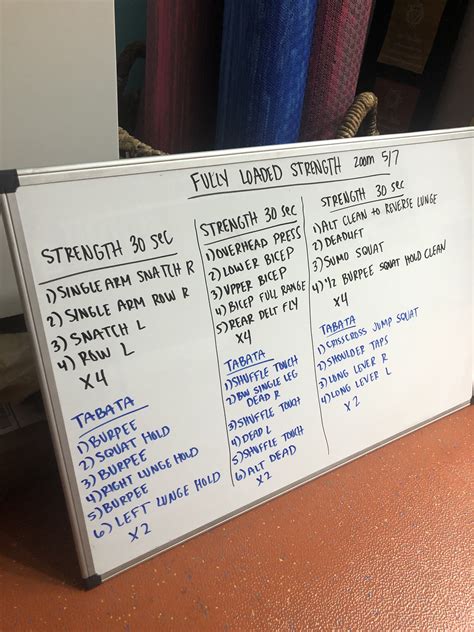 FULLY LOADED STRENGTH ZOOM 5/7
STRENGTH 30 SEC
1) SINGLE ARM SNATCH R
2) SINGLE ARM ROW R
3) SNATCH L
4) ROW L
X4
TABATA
1) BURPEE
2) SQUAT HOLD
3) BURPEE
4) RIGHT LUNGE HOLD
5) BURPEE
6) LEFT LUNGE HOLD
X2
STRENGTH 30 SEC
1) OVERHEAD PRESS
2) LOWER BICEP
3) UPPER BICEP
4) BICEP FULL RANGE
5) REAR DELT FLY
X4
TABATA
1) SHUFFLE TOUCH
2) BW SINGLE LEG
DEAD R
3) SHUFFLE TOUCH
4) DEAD L
5) SHUFFLE TOUCH
6) ALT DEAD
X2
STRENGTH 30 SEC
1) ALT CLEAN TO REVERSE LUNGE
2) DEADLIFT
3) SUMO SQUAT
4) 1/2 BURPEE SQUAT HOLD CLEAN
X4
TABATA
1) CRISSCROSS JUMP SQUAT
2) SHOULDER TAPS
3) LONG LEVER R
4) LONG LEVER L
X2